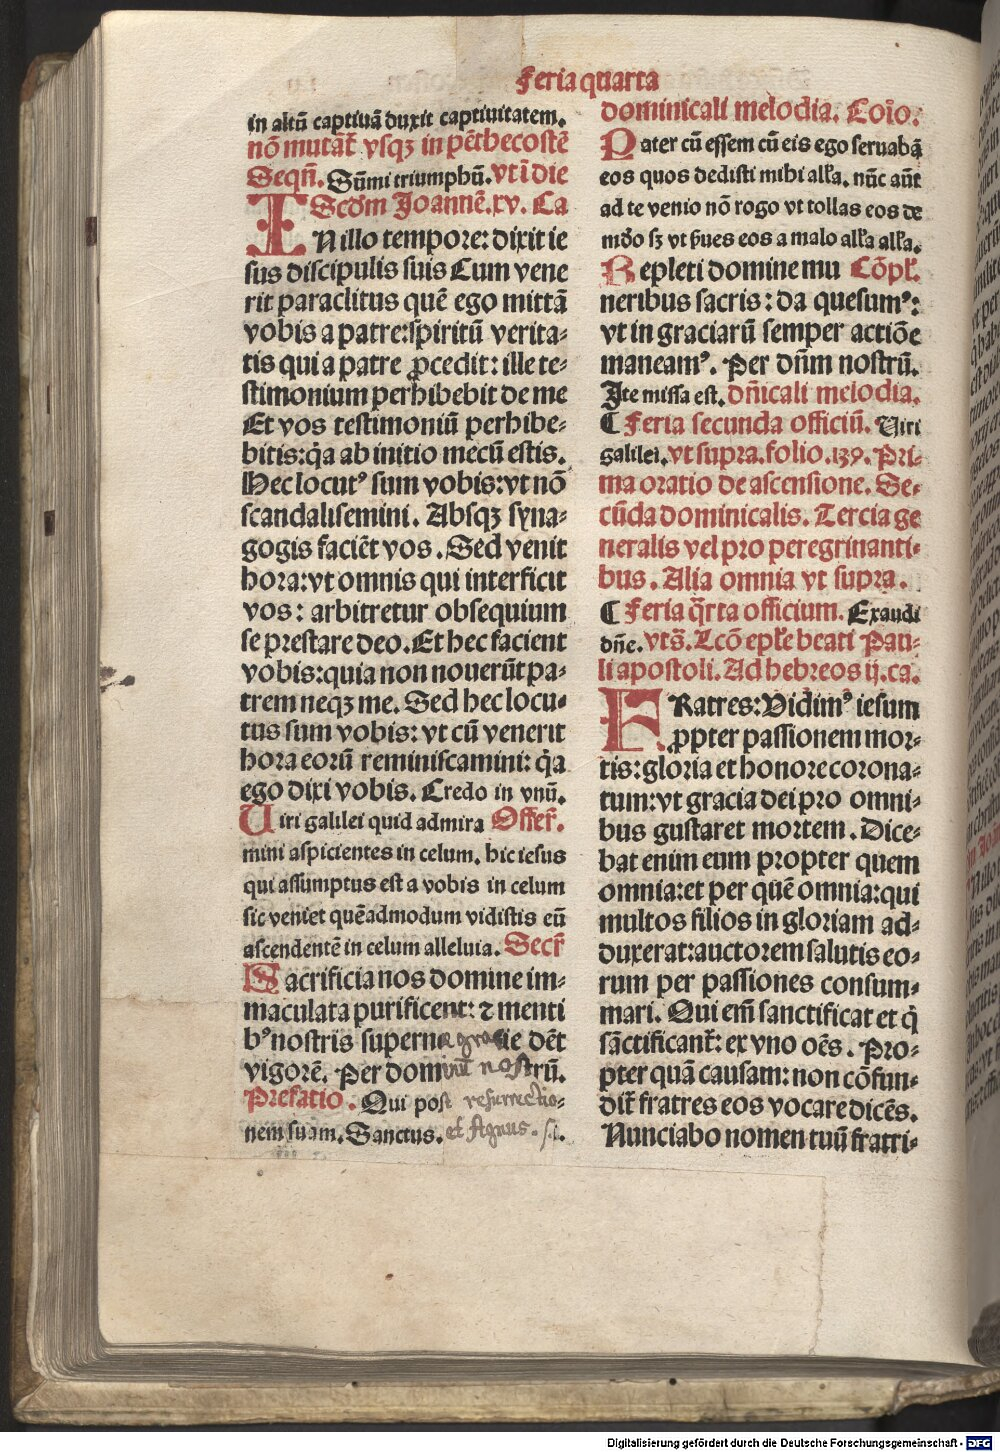 Feria quarta
in altū captiuā duxit captiuitatem.
nō mutat̄ vsqꝫ in pēthecostē
Seqn̄. Sūmi triumphū. vt ī die
Scd̄m Joannē. xv. Ca
IN illo tempore: dixit ie
sus discipulis suis Cum vene
rit paraclitus quē ego mittā
vobis a patre: spiritū verita-
tis qui a patre ꝓcedit: ille te-
stimonium perhibebit de me
Et vos testimoniū perhibe-
bitis: q̇a ab initio mecū estis.
Hec locutꝰ sum vobis: vt nō
scandalisemini. Absqꝫ syna-
gogis faciēt vos. Sed venit
hora: vt omnis qui interficit
vos: arbitretur obsequium
se prestare deo. Et hec facient
vobis: quia non nouerūt pa-
trem neqꝫ me. Sed hec locu-
tus sum vobis: vt cū venerit
hora eorū reminiscamini: q̇a
ego dixi vobis. Credo in vnū.
Uiri galilei quid admira Offer̄.
mini aspicientes in celum. hic iesus
qui assumptus est a vobis in celum
sic veniet quēadmodum vidistis eū
ascendentē in celum alleluia. Secr̄
Sacrificia nos domine im-
maculata purificent: ⁊ menti
bꝰ nostris superna gracie dēt
vigorē. Per dominū nostrū.
Prefatio. Qui post resurrectio-
nem suam. Sanctus. et Agnus.
dominicali melodia. Coīo.
Pater cū essem cū eis ego seruabā
eos quos dedisti mihi all̄a. nūc aūt
ad te venio nō rogo vt tollas eos de
mūdo sꝫ vt p̄ues eos a malo all̄a all̄a.
Repleti domine mu Cōpl̄.
neribus sacris: da quesumꝰ:
vt in graciarū semper actiōe
maneamꝰ. Per dn̄m nostrū.
Ite missa est. dn̄icali melodia.
¶ Feria secunda officiū. Viri
galilei. vt supra. folio. 139. Pri-
ma oratio de ascensione. Se-
cūda dominicalis. Tercia ge
neralis vel pro peregrinanti-
bus. Alia omnia vt supra.
¶ Feria q̄rta officium. Exaudi
dn̄e. vt s̄. Lcō epl̄e beati Pau-
li apostoli. Ad hebreos ij. ca.
FRatres: Vidimꝰ iesum
ꝓpter passionem mor-
tis: gloria et honore corona-
tum: vt gracia dei pro omni-
bus gustaret mortem. Dice-
bat enim eum propter quem
omnia: et per quē omnia: qui
multos filios in gloriam ad-
duxerat: auctorem salutis eo-
rum per passiones consum-
mari. Qui em̄ sanctificat et q̇
sāctificant̄: ex vno oēs. Pro-
pter quā causam: non cōfun-
dit̄ fratres eos vocare dicēs.
Nunciabo nomen tuū fratri-
Digitalisierung gefördert durch die Deutsche Forschungsgemeinschaft - DFG